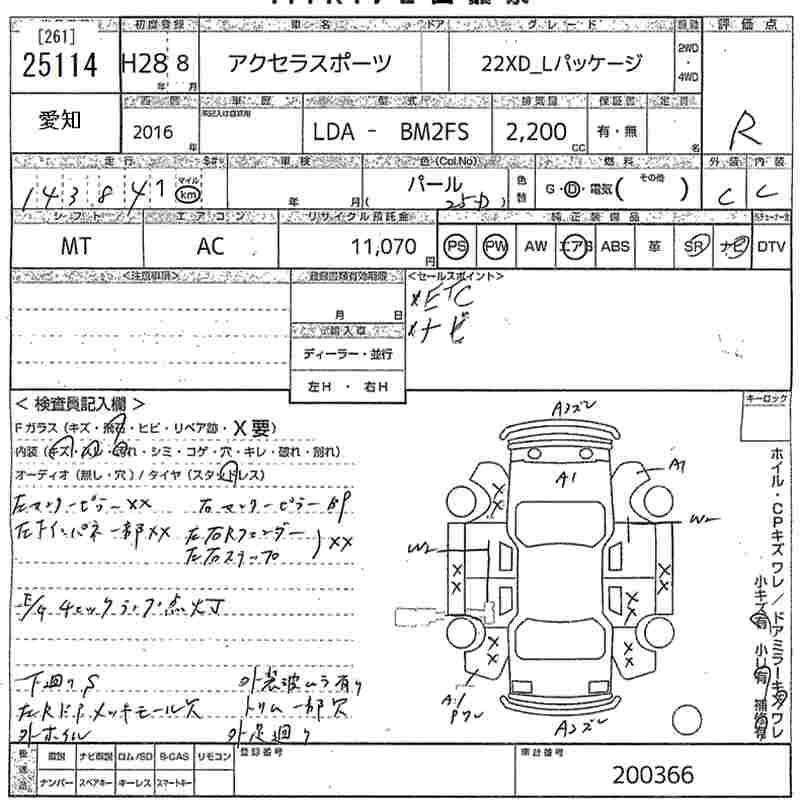 [261]
25114
初度登録
車名
ドア
グレード
評価点
H28 8
年 月
アクセラスポーツ
22XD_Lパッケージ
2WD
・
4WD
R
愛知
西暦
車歴
型式
排気量
保証書
定員
2016
年
LDA - BM2FS
2,200
CC
有・無
名
走行
車検
色(Col.No)
燃料
外装
内装
143841
マイル
km
年 月
パール
( 25D )
色替
G・D・電気( その他 )
C C
シフト
エアコン
リサイクル預託金
純正装備品
MT
AC
11,070 円
PS PW AW エアB ABS 革 SR ナビ DTV
<注意事項>
登録書類有効期限
<セールスポイント>
月 日
×ETC
×ナビ
輸入車
ディーラー・並行
左H ・ 右H
< 検査員記入欄 >
キーロック
Fガラス (キズ・飛石・ヒビ・リペア跡・X要)
内装 (キズ・汚れ・シミ・コゲ・穴・キレ・破れ・割れ)
オーディオ (無し・穴) / タイヤ (スタッドレス)
左センターピラーXX 右センターピラーBP
左インパネ一部XX 左右Rフェンダー
左右ステップ )XX
E/gチェックランプ点灯
下廻りS 外装波ムラ有り
左Rドアメッキモール欠 トリム一部欠
外ホイル 外足廻り
Aスレ
A1
A1
W2
W2
XX
XX
XX
XX
XX
XX
A1
Pワレ
Aスレ
ホイル・CPキズワレ / ドアミラーキズワレ
小キズ有 小凹有 補修有
後送品
取説 ナビ取説 ロム/SD B-CAS リモコン
ナンバー スペアキー キーレス スマートキー
登録番号
車台番号
200366